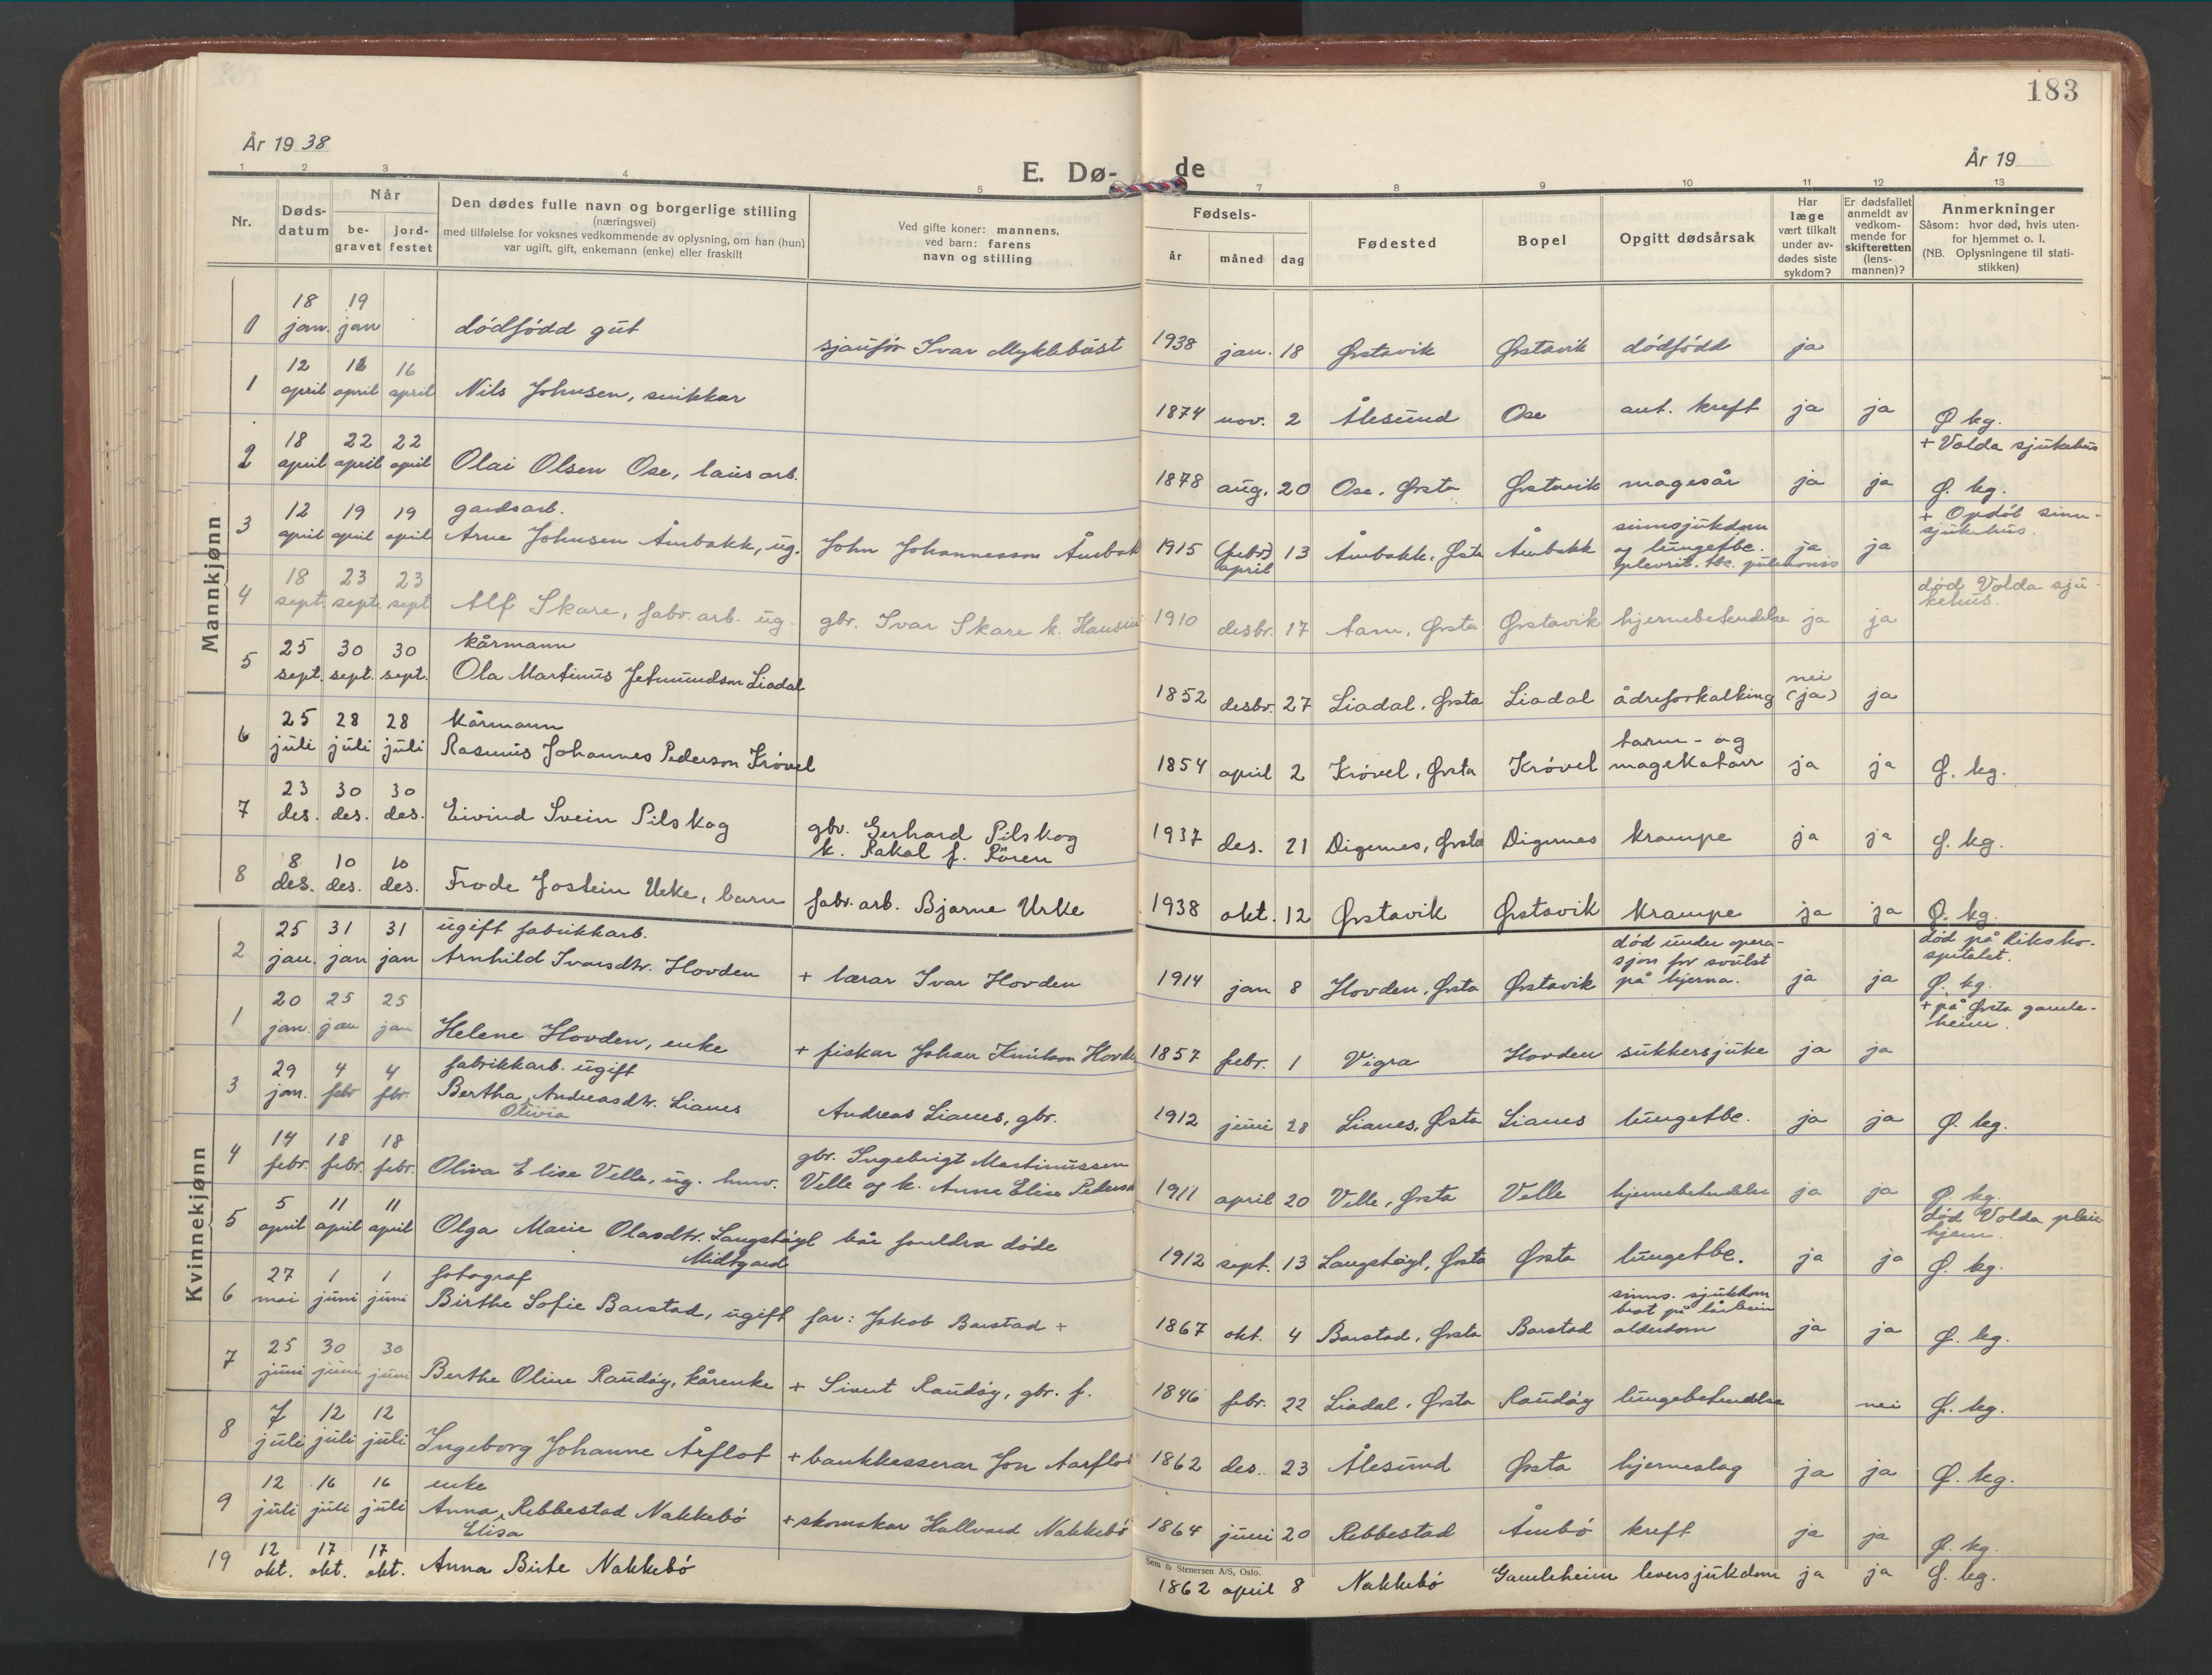 183
År 19 38
E. Dø-
de
År 19
1 2 3 4 5 7 8 9 10 11 12 13
Nr.
Døds-
datum
Når
be-
gravet
jord-
festet
Den dødes fulle navn og borgerlige stilling
(næringsvei)
med tilføielse for voksnes vedkommende av oplysning, om han (hun)
var ugift, gift, enkemann (enke) eller fraskilt
Ved gifte koner: mannens,
ved barn: farens
navn og stilling
Fødsels-
år måned dag
Fødested
Bopel
Opgitt dødsårsak
Har
læge
vært tilkalt
under av-
dødes siste
sykdom?
Er dødsfallet
anmeldt av
vedkom-
mende for
skifteretten
(lens-
mannen)?
Anmerkninger
Såsom: hvor død, hvis uten-
for hjemmet o. l.
(NB. Oplysningene til stati-
stikken)
Mannkjønn
18 19
0 jan. jan dödfödd gut sjauför Ivar Myklebust 1938 jan. 18 Ørstavik Ørstavik dödfödd ja
12 16 16
1 april april april Nils Johnsen, snikkar 1874 nov. 2 Ålesund Ose ant. kreft ja ja Ø kg.
18 22 22
+ Volda sjukehus
2 april april april Olai Olsen Ose, laus arb. 1878 aug. 20 Ose, Ørsta Ørstavik magesår ja ja Ø. kg.
12 19 19 gardsarb. sinnsjukdom + Opdöl sinn-
sjukehus.
3 april april april Arne Johnsen Åmbakk, ug. John Johannesson Åmbakk 1915 (febr) 13 Åmbakk, Ørsta Åmbakk og lungetbc. ja ja
april plevrit. tbc. pulmonis
18 23 23 död Volda sju-
kehus.
4 sept. sept. sept Alf Skare, fabr. arb. ug. gbr. Ivar Skare k. 1910 desbr. 17 Aam, Ørsta Ørstavik hjernebetendelse ja ja
25 30 30 kårmann nei
5 sept. sept. sept. Ola Martinus Jetmundson Liadal 1852 desbr. 27 Liadal, Ørsta Liadal ådreforkalking (ja) ja
25 28 28 Kårmann tarm- og
6 juli juli juli Rasmus Johannes Pederson Króvel 1854 april 2 Króvel, Ørsta Króvel magekatarr ja ja Ø. kg.
23 30 30
7 des. des. des. Eivind Svein Pilskog gbr. Gerhard Pilskog 1937 des. 21 Digernes, Ørsta Digernes krampe ja ja Ø. kg.
k. Rakel f. Rören
8 10 10
8 des. des. des. Frode Jostein Urke, barn fabr. arb. Bjarne Urke 1938 okt. 12 Ørstavik Ørstavik Krampe ja ja Ø. kg.
Kvinnekjønn
25 31 31 ugift fabrikkarb. död under opera-
sjon for svulst död på Riksho-
spitalet.
2 jan. jan jan Arnhild Ivarsdtr. Hovden + lærar Ivar Hovden 1914 jan 8 Hovden, Ørsta Ørstavik på hjerna. ja ja Ø. kg.
20 25 25 + på Ørsta gamle-
heim.
1 jan. jan jan Helene Hovden, enke + fiskar Johan Knutson Hovden 1857 febr. 1 Vigra Hovden sukkersjuke ja ja
29 4 4 fabrikkarb. ugift
3 jan. febr fbr. Bertha Andreasdtr. Lianes Andreas Lianes, gbr. 1912 juni 28 Lianes, Ørsta Lianes lungetbc. ja ja Ø. kg.
Olivia
14 18 18 gbr. Ingebrigt Martinussen
4 febr. febr. febr. Oliva Elise Velle, ug. husv. Velle og k. Anne Elise Pedersd 1911 april 20 Velle, Ørsta Velle hjernebetendelse ja ja Ø. kg.
5 11 11 död Volda pleie
hjem.
5 april april april Olga Marie Olasdtr. Langstøyl bår foreldra döde 1912 sept. 13 Langstøyl, Ørsta Ørsta lungetbc. ja ja Ø. kg.
Midtgard
27 1 1 fotograf sinns. sjukdom
brot på lårbein
6 mai juni juni Birthe Sofie Barstad, ugift far: Jakob Barstad + 1867 okt. 4 Barstad, Ørsta Barstad alderdom ja ja Ø. kg.
25 30 30
7 juni juni juni Berthe Oline Raudøy, kårenke + Sivert Raudøy, gbr. f. 1846 febr. 22 Liadal, Ørsta Raudøy lungebetendelse nei Ø. kg.
7 12 12
8 juli juli juli Ingeborg Johanne Årflot + bankkasserar Jon Aarflot 1862 des. 23 Ålesund Ørsta hjerneslag ja ja Ø. kg.
12 16 16 enke
9 juli juli juli Anna Rebbestad Nakkebö + skomakar Hallvard Nakkebö 1864 juni 20 Rebbestad Åmbö kreft ja ja Ø. kg.
Elisa
12 17 17
19 okt. okt. okt. Anna Birte Nakkebö 1862 april 8 Nakkebö Gamleheim leversjukdom ja ja Ø. kg.
Sem & Stenersen A/S, Oslo.